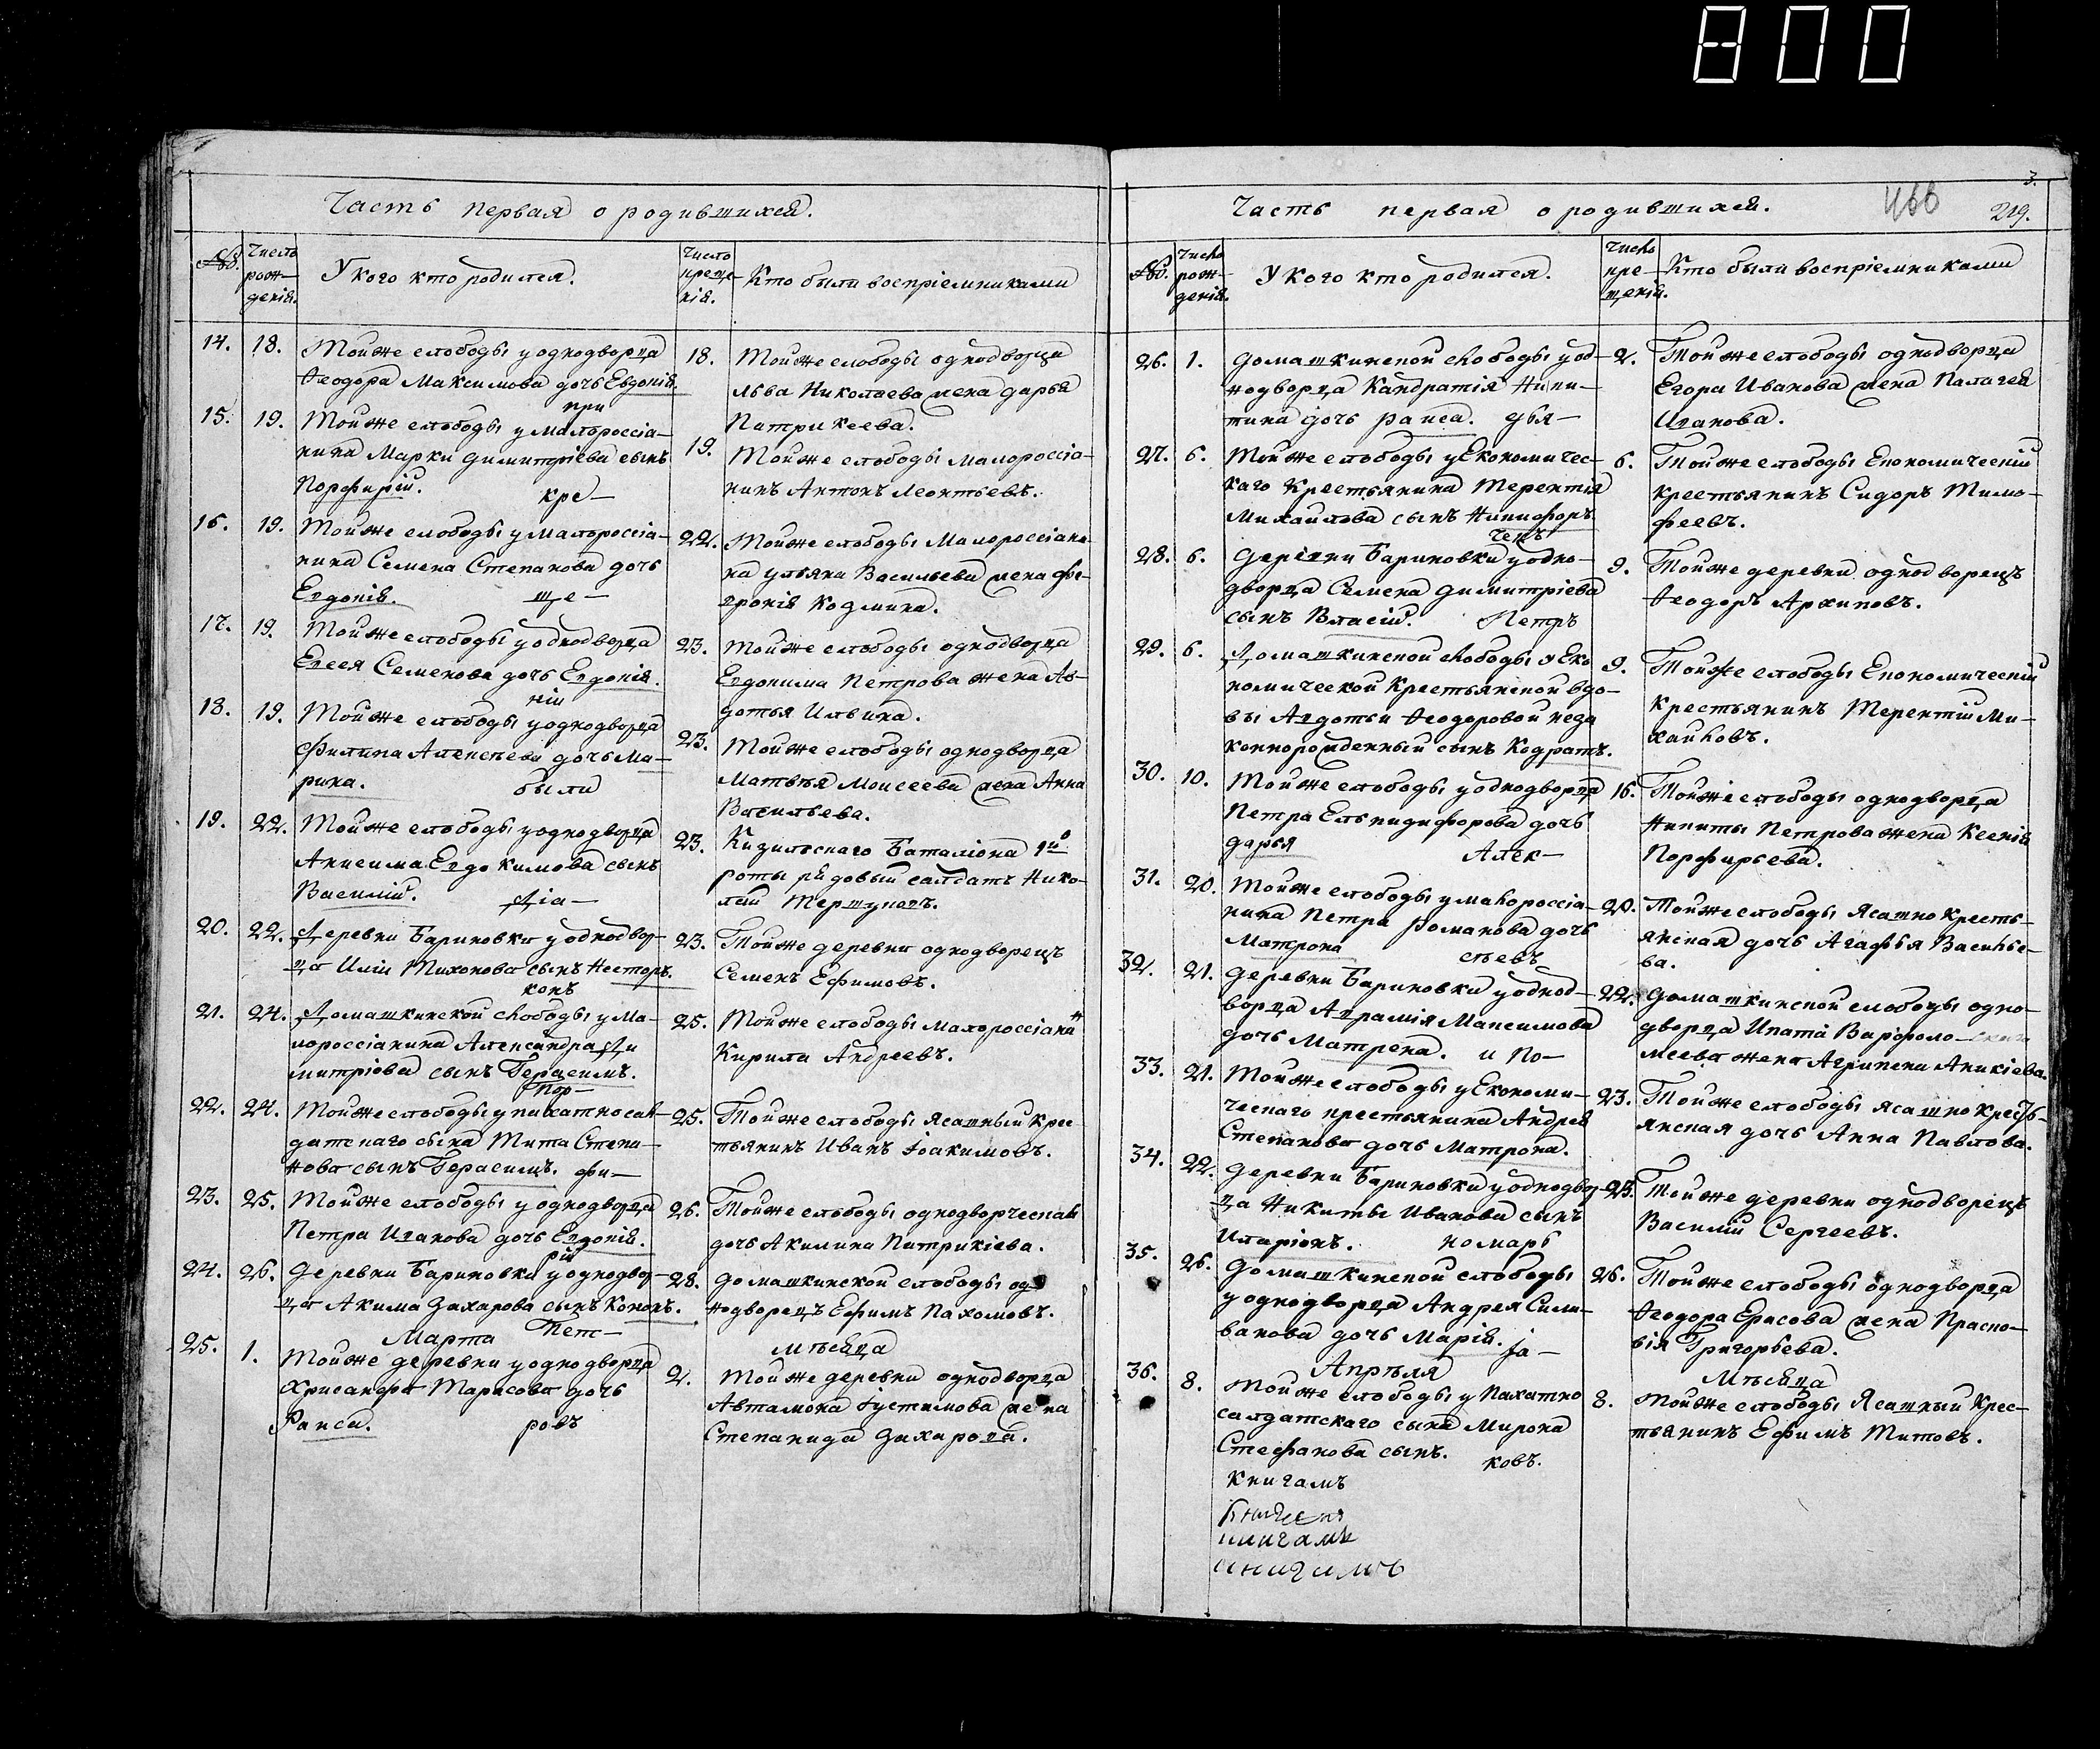 800
Часть первая о родившихся.
№.
Число рож-денія.
У кого кто родился.
Число креще-нія.
Кто были воспріемниками
14. 18.
Тойже слободы у однодворца
Ѳеодора Максимова дочь Евдокія.
18.
Тойже слободы однодворца
Льва Николаева жена Дарья
Патрикеева.
при
15. 19.
Тойже слободы у малороссія-
нина Марки Димитріева сынъ
Порфирій.
кре-
19.
Тойже слободы малороссія-
нинъ Антонъ Леонтьевъ.
16. 19.
Тойже слободы у малороссія-
нина Семена Степанова дочь
Евдокія.
ще-
22.
Тойже слободы Малороссіяни-
на Ульяна Васильева жена Фе-
вронія Кодмина.
17. 19.
Тойже слободы у однодворца
Евсея Семенова дочь Евдокія.
23.
Тойже слободы однодворца
Евдокима Петрова жена Ав-
дотья Ильина.
ніи
18. 19.
Тойже слободы у однодворца
Филипа Алексѣева дочь Ма-
рина.
были
23.
Тойже слободы однодворца
Матвѣя Моисеева жена Анна
Васильева.
19. 22.
Тойже слободы у однодворца
Анисима Евдокимова сынъ
Василій.
Діа-
23.
Кизильскаго Баталіона 1й
роты рядовый салдатъ Нико-
лай Тершуковъ.
20. 22.
Деревни Бариновки у однодвор-
ца Иліи Тихонова сынъ Несторъ.
23.
Тойже деревни однодворецъ
Семенъ Ефимовъ.
конъ
21. 24.
Домашкинской слободы у Ма-
лороссіянина Александра Ди
митріева сынъ Герасимъ.
25.
Тойже слободы малороссіянин
Кирила Андреевъ.
Пор-
22. 24.
Тойже слободы у пахатно сал-
датскаго сына Тита Степа-
нова сынъ Герасимъ.
фи-
25.
Тойже слободы Ясашный крес
тьянинъ Иванъ Іоакимовъ.
23. 25.
Тойже слободы у однодворца
Петра Иванова дочь Евдокія.
26.
Тойже слободы однодворческая
дочь Акилина Патрикіева.
рій
24. 26.
Деревни Бариновки у однодвор-
ца Акима Захарова сынъ Кононъ.
28.
Домашкинской слободы од
нодворецъ Ефимъ Пахомовъ.
Марта
Пет-
мѣсяца
25. 1.
Тойже деревни у однодворца
Хрисанфа Тарасова дочь
Раиса.
ровъ
2.
Тойже деревни однодворца
Автамона Іустимова жена
Степанида Захарова.
3.
466
219.
Часть первая о родившихся.
№.
Число рож-денія.
У кого кто родился.
Число кре-щенія.
Кто были воспріемниками
26. 1.
Домашкинской слободы у од-
нодворца Кандратія Ники-
тина дочь Раиса.
Дья-
2.
Тойже слободы однодворца
Егора Иванова жена Палагея
Иванова.
27. 6.
Тойже слободы у Економичес-
каго Крестьянина Терентія
Михаилова сынъ Никифоръ
6.
Тойже слободы Економическій
крестьянинъ Сидоръ Тимо-
феевъ.
чекъ
28. 6.
Деревни Бариновки у одно-
дворца Семена Димитріева
сынъ Власій.
Петръ
9.
Тойже деревни однодворецъ
Ѳеодоръ Архиповъ.
29. 6.
Домашкинской слободы у Еко
номической Крестьянской вдо-
вы Авдотьи Ѳеодоровой неза
коннорожденный сынъ Кодратъ.
9.
Тойже слободы Економическій
Крестьянинъ Терентій Ми-
хаиловъ.
30. 10.
Тойже слободы у однодворца
Петра Ельпидифорова дочь
Дарья
Алек-
16.
Тойже слободы однодворца
Никиты Петрова жена Ксенія
Порфирьева.
31. 20.
Тойже слободы у малороссія-
нина Петра Романова дочь
Матрона
сѣевъ
20.
Тойже слободы Ясашно кресть-
янская дочь Агафья Василье-
ва.
32. 21.
Деревни Бариновки у однод-
ворца Аврамія Максимова
дочь Матрена.
и По-
22.
Домашкинской слободы одно-
дворца Ипата Варфоло-
меева жена Агрипена Аникіева.
33. 21.
Тойже слободы у Економи-
ческаго крестьянина Андрея
Степанова дочь Матрона.
23.
Тойже слободы Ясашно кресть-
янская дочь Анна Павлова.
34. 22.
Деревни Бариновки у однодвор-
ца Никиты Иванова сынъ
Иларіонъ.
номарь
25.
Тойже деревни однодворецъ
Василій Сергеевъ.
35. 26.
Домашкинской слободы
у однодворца Андрея Сели-
ванова дочь Марія.
Іа-
26.
Тойже слободы однодворца
Ѳеодора Ерасова жена Праско-
вія Григорьева.
Апрѣля
Мѣсяца
36. 8.
Тойже слободы у Пахатно
салдатскаго сына Мирона
Стефанова сынъ.
ковъ.
8.
Тойже слободы Ясашный Крес-
тьянинъ Ефимъ Титовъ.
книгамъ
книгамъ
книгамъ